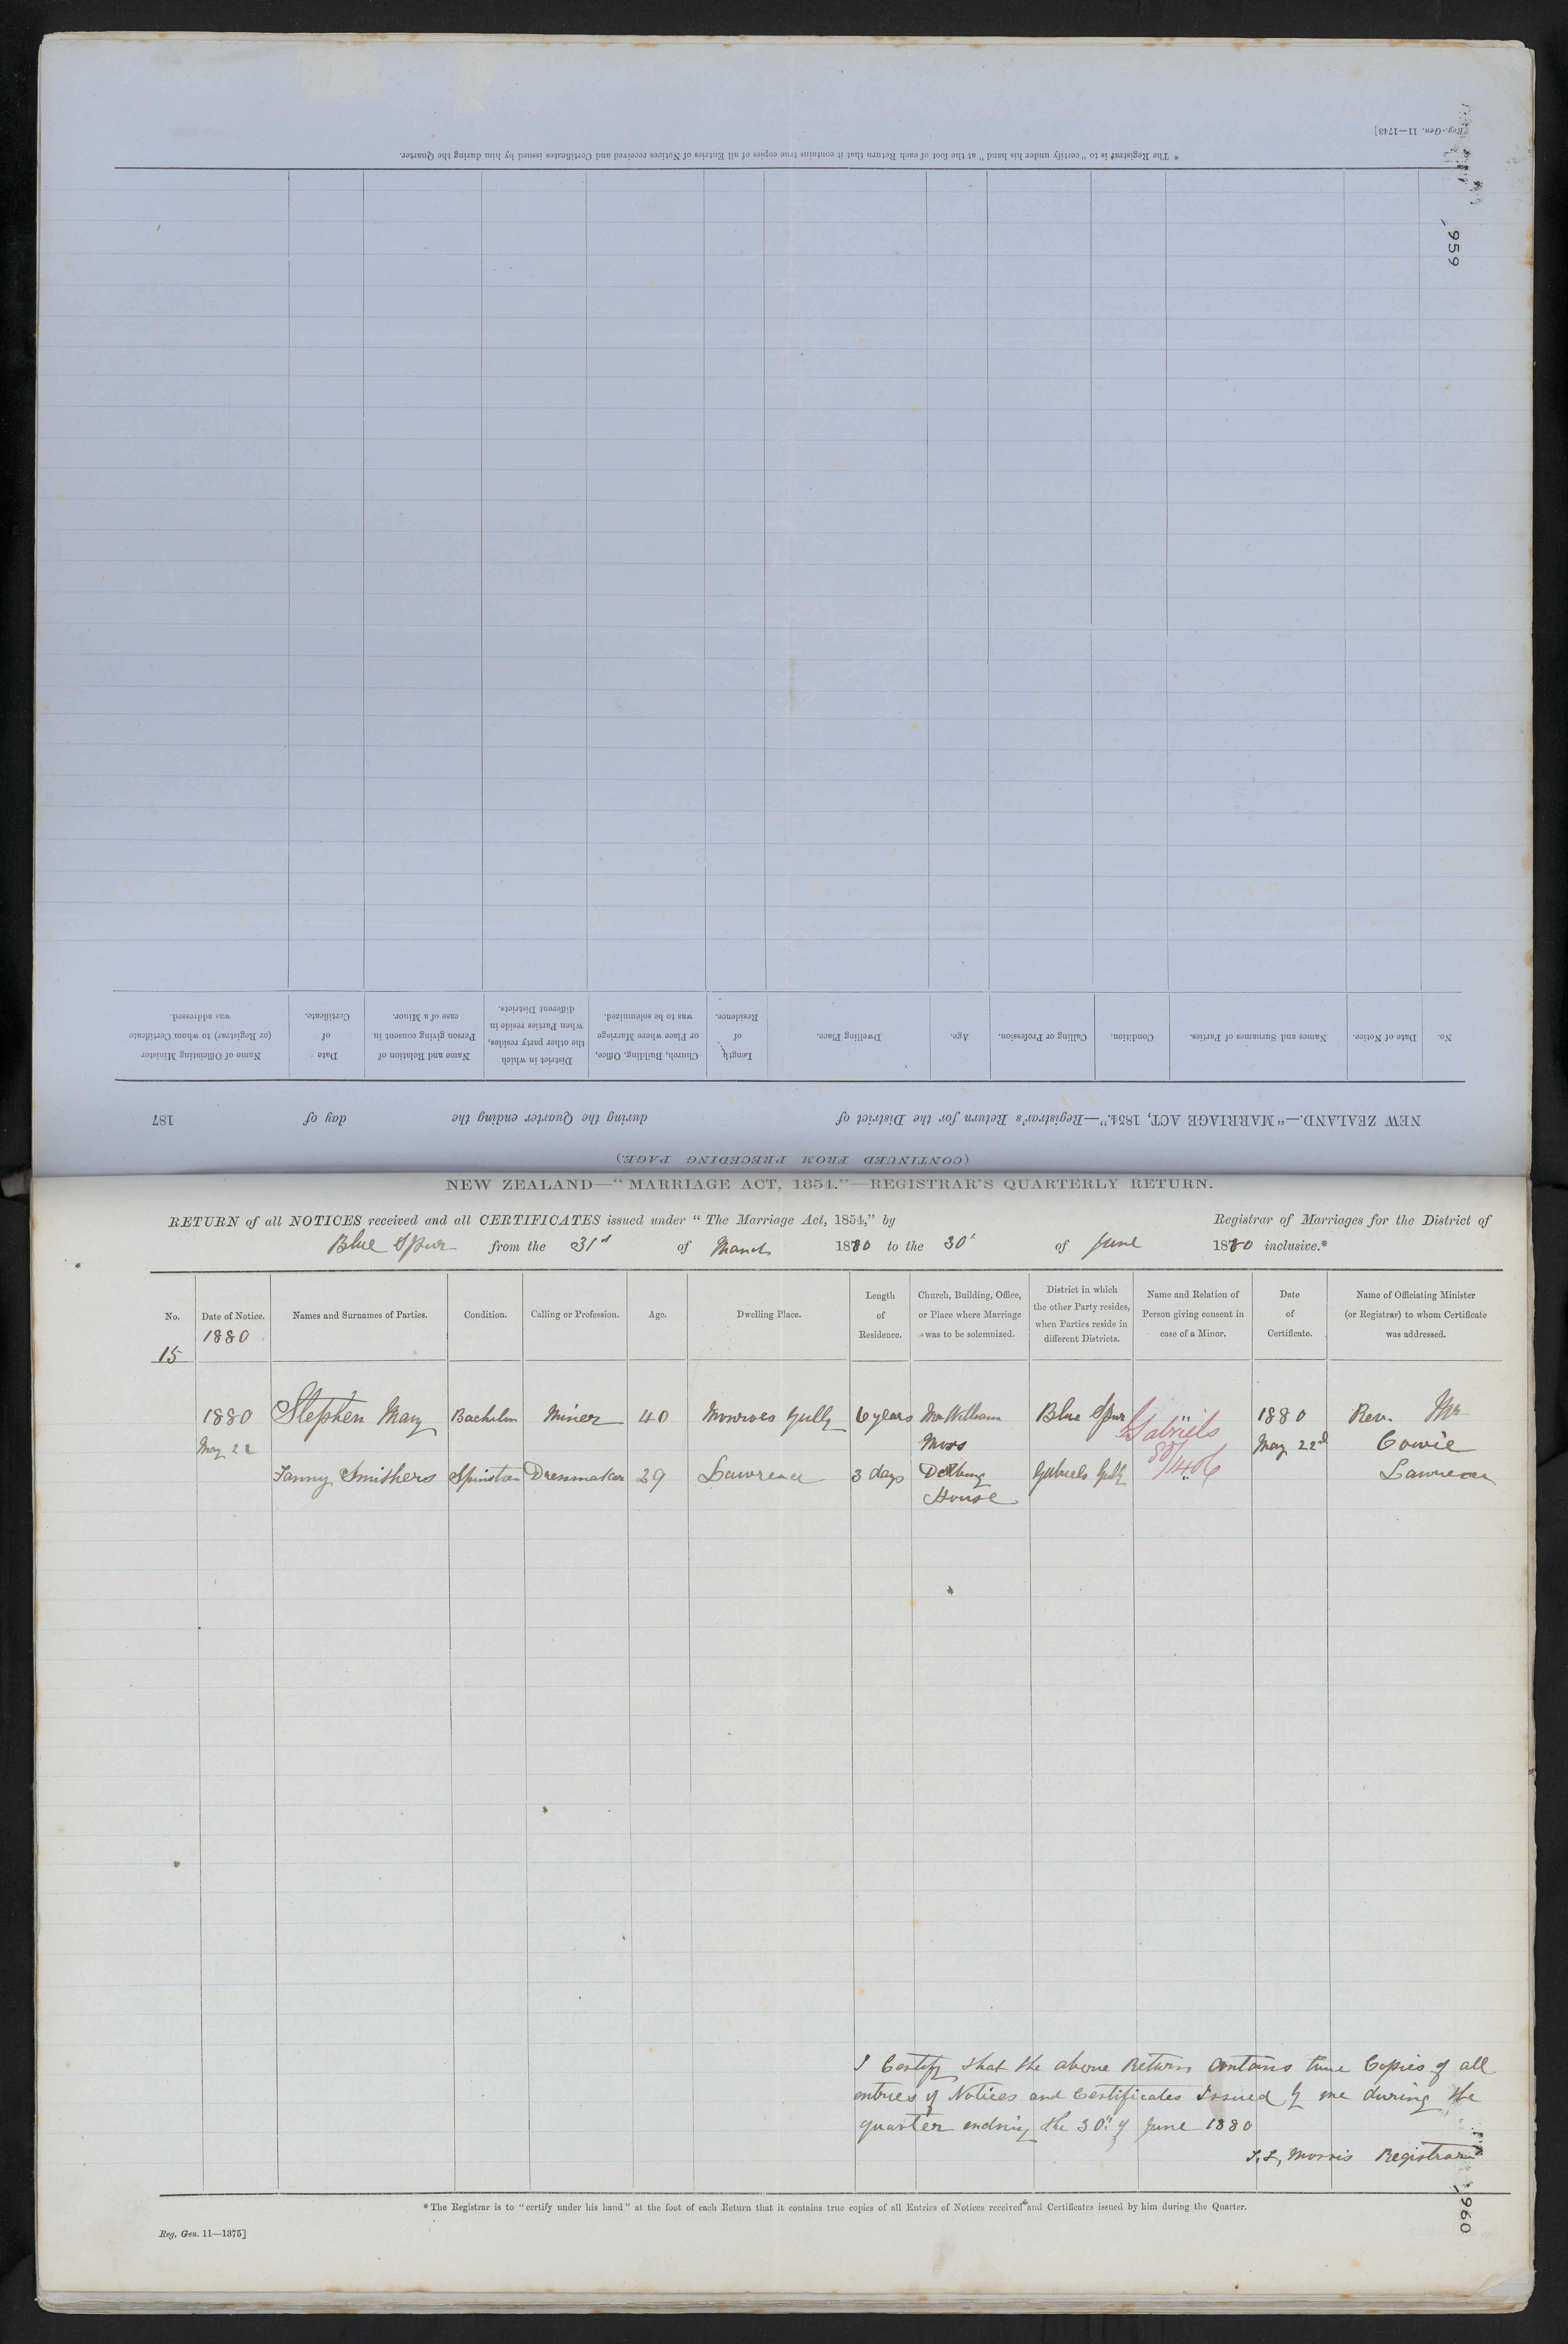 Reg.-Gen. 11—1743]
* The Registrar is to "certify under his hand" at the foot of each Return that it contains true copies of all Entries of Notices received and Certificates issued by him during the Quarter.
959
(CONTINUED FROM PRECEDING PAGE.)
NEW ZEALAND.—"MARRIAGE ACT, 1854."—Registrar's Return for the District of during the Quarter ending the day of 187
No. Date of Notice. Names and Surnames of Parties. Condition. Calling or Profession. Age. Dwelling Place. Length of Residence. Church, Building, Office, or Place where Marriage was to be solemnized. District in which the other party resides, when Parties reside in different Districts. Name and Relation of Person giving consent in case of a Minor. Date of Certificate. Name of Officiating Minister (or Registrar) to whom Certificate was addressed.
NEW ZEALAND—"MARRIAGE ACT, 1854."—REGISTRAR'S QUARTERLY RETURN.
RETURN of all NOTICES received and all CERTIFICATES issued under "The Marriage Act, 1854," by Registrar of Marriages for the District of
Blue Spur from the 31st of March 1880 to the 30th of June 1880 inclusive.*
No. Date of Notice. Names and Surnames of Parties. Condition. Calling or Profession. Age. Dwelling Place. Length of Residence. Church, Building, Office, or Place where Marriage was to be solemnized. District in which the other Party resides, when Parties reside in different Districts. Name and Relation of Person giving consent in case of a Minor. Date of Certificate. Name of Officiating Minister (or Registrar) to whom Certificate was addressed.
1880
15
1880 Stephen May Bachelor Miner 40 Monroes Gully 6 years Mr William Blue Spur Gabriels 1880 Rev. Mr
May 22 Moss 80/1406 May 22d Cowie
Fanny Smithers Spinster Dressmaker 29 Lawrence 3 days Dwelling Gabriels Gully Lawrence
House
I Certify that the above Return Contains true Copies of all
entries of Notices and Certificates Issued by me during the
quarter ending the 30th of June 1880
Morris Registrar
* The Registrar is to "certify under his hand" at the foot of each Return that it contains true copies of all Entries of Notices received and Certificates issued by him during the Quarter.
Reg. Gen. 11—1375]
960